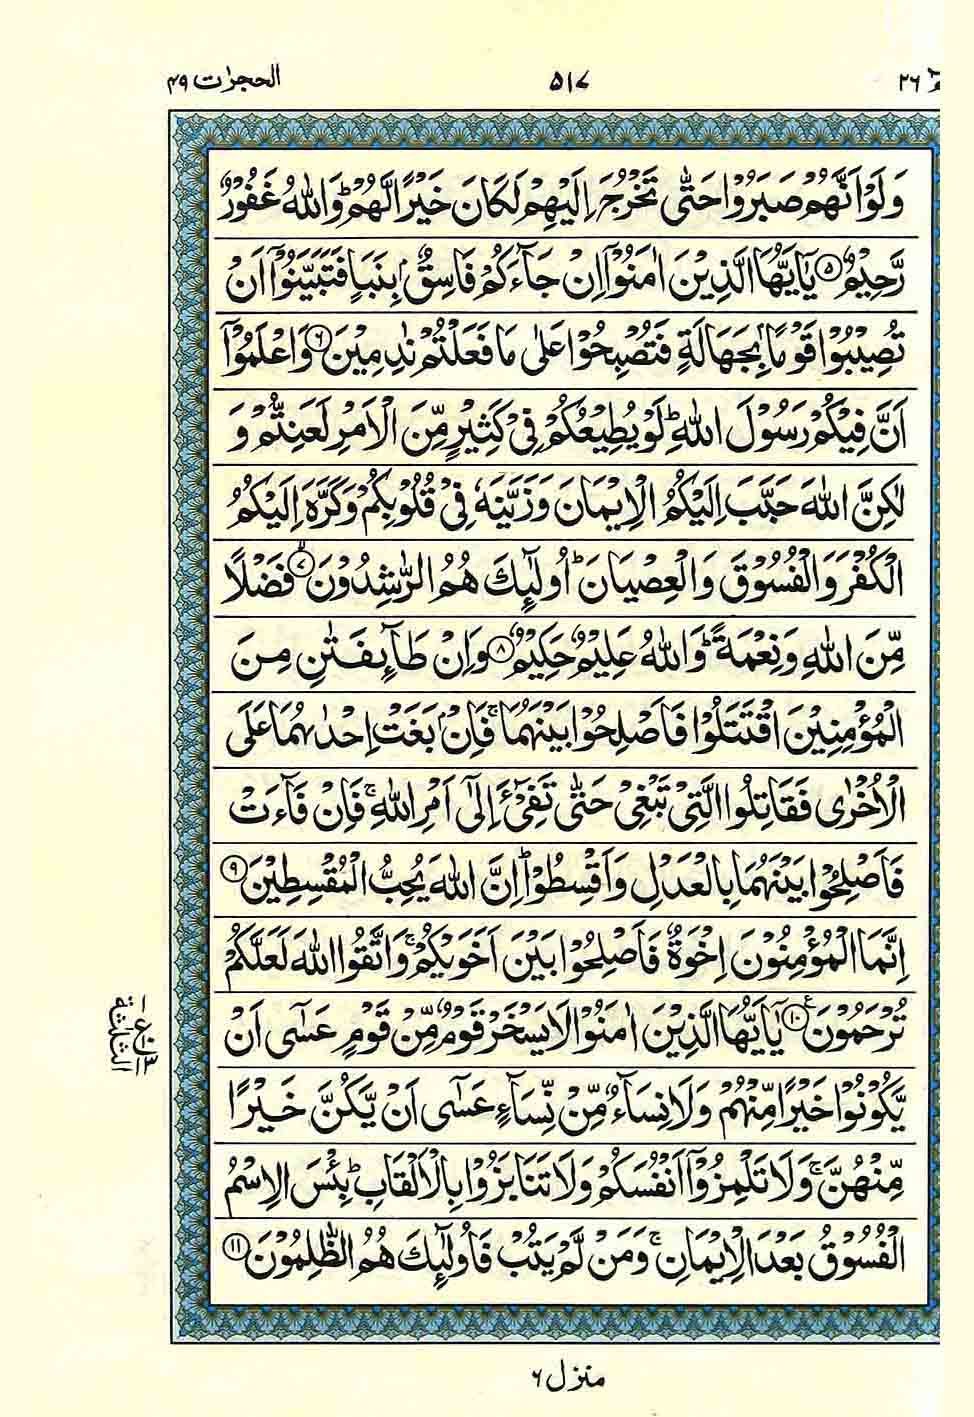 الحجرٰت ۴۹
۵۱۷
۲۶
وَلَوْ اَنَّهُمْ صَبَرُوْا حَتّٰى تَخْرُجَ اِلَيْهِمْ لَكَانَ خَيْرًا لَّهُمْ ؕ وَاللّٰهُ غَفُوْرٌ
رَّحِيْمٌ ۵ يٰۤاَيُّهَا الَّذِيْنَ اٰمَنُوْۤا اِنْ جَآءَكُمْ فَاسِقٌۢ بِنَبَاٍ فَتَبَيَّنُوْۤا اَنْ
تُصِيْبُوْا قَوْمًۢا بِجَهَالَةٍ فَتُصْبِحُوْا عَلٰى مَا فَعَلْتُمْ نٰدِمِيْنَ ۶ وَاعْلَمُوْۤا
اَنَّ فِيْكُمْ رَسُوْلَ اللّٰهِ ؕ لَوْ يُطِيْعُكُمْ فِيْ كَثِيْرٍ مِّنَ الْاَمْرِ لَعَنِتُّمْ وَ
لٰكِنَّ اللّٰهَ حَبَّبَ اِلَيْكُمُ الْاِيْمَانَ وَزَيَّنَهٗ فِيْ قُلُوْبِكُمْ وَكَرَّهَ اِلَيْكُمُ
الْكُفْرَ وَالْفُسُوْقَ وَالْعِصْيَانَ ؕ اُولٰٓئِكَ هُمُ الرّٰشِدُوْنَ ۙ ۷ فَضْلًا
مِّنَ اللّٰهِ وَنِعْمَةً ؕ وَاللّٰهُ عَلِيْمٌ حَكِيْمٌ ۸ وَاِنْ طَآئِفَتٰنِ مِنَ
الْمُؤْمِنِيْنَ اقْتَتَلُوْا فَاَصْلِحُوْا بَيْنَهُمَا ۚ فَاِنْۢ بَغَتْ اِحْدٰىهُمَا عَلَى
الْاُخْرٰى فَقَاتِلُوا الَّتِيْ تَبْغِيْ حَتّٰى تَفِيْٓءَ اِلٰٓى اَمْرِ اللّٰهِ ۚ فَاِنْ فَآءَتْ
فَاَصْلِحُوْا بَيْنَهُمَا بِالْعَدْلِ وَاَقْسِطُوْا ؕ اِنَّ اللّٰهَ يُحِبُّ الْمُقْسِطِيْنَ ۹
اِنَّمَا الْمُؤْمِنُوْنَ اِخْوَةٌ فَاَصْلِحُوْا بَيْنَ اَخَوَيْكُمْ ۚ وَاتَّقُوا اللّٰهَ لَعَلَّكُمْ
تُرْحَمُوْنَ ۧ ۱۰ يٰۤاَيُّهَا الَّذِيْنَ اٰمَنُوْا لَا يَسْخَرْ قَوْمٌ مِّنْ قَوْمٍ عَسٰٓى اَنْ
يَّكُوْنُوْا خَيْرًا مِّنْهُمْ وَلَا نِسَآءٌ مِّنْ نِّسَآءٍ عَسٰٓى اَنْ يَّكُنَّ خَيْرًا
مِّنْهُنَّ ۚ وَلَا تَلْمِزُوْۤا اَنْفُسَكُمْ وَلَا تَنَابَزُوْا بِالْاَلْقَابِ ؕ بِئْسَ الِاسْمُ
الْفُسُوْقُ بَعْدَ الْاِيْمَانِ ۚ وَمَنْ لَّمْ يَتُبْ فَاُولٰٓئِكَ هُمُ الظّٰلِمُوْنَ ۱۱
۱
ع
۱۰
۱۳
الثلثة
منزل ۶